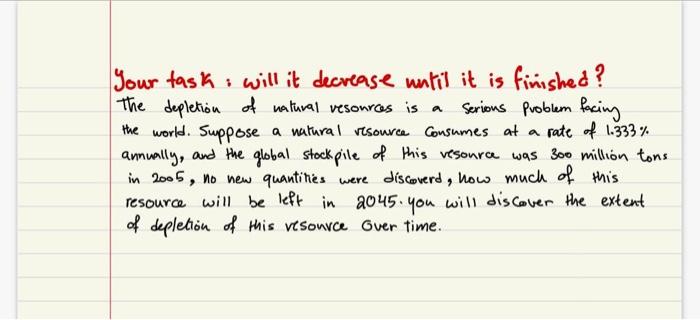 Your task : will it decrease until it is finished?
The depletion of natural resources is a serious problem facing
the world. Suppose a natural resource consumes at a rate of 1.333%
annually, and the global stockpile of this resource was 300 million tons
in 2005, no new quantities were discoverd, how much of this
resource will be left in 2045. you will discover the extent
of depletion of this resource over time.